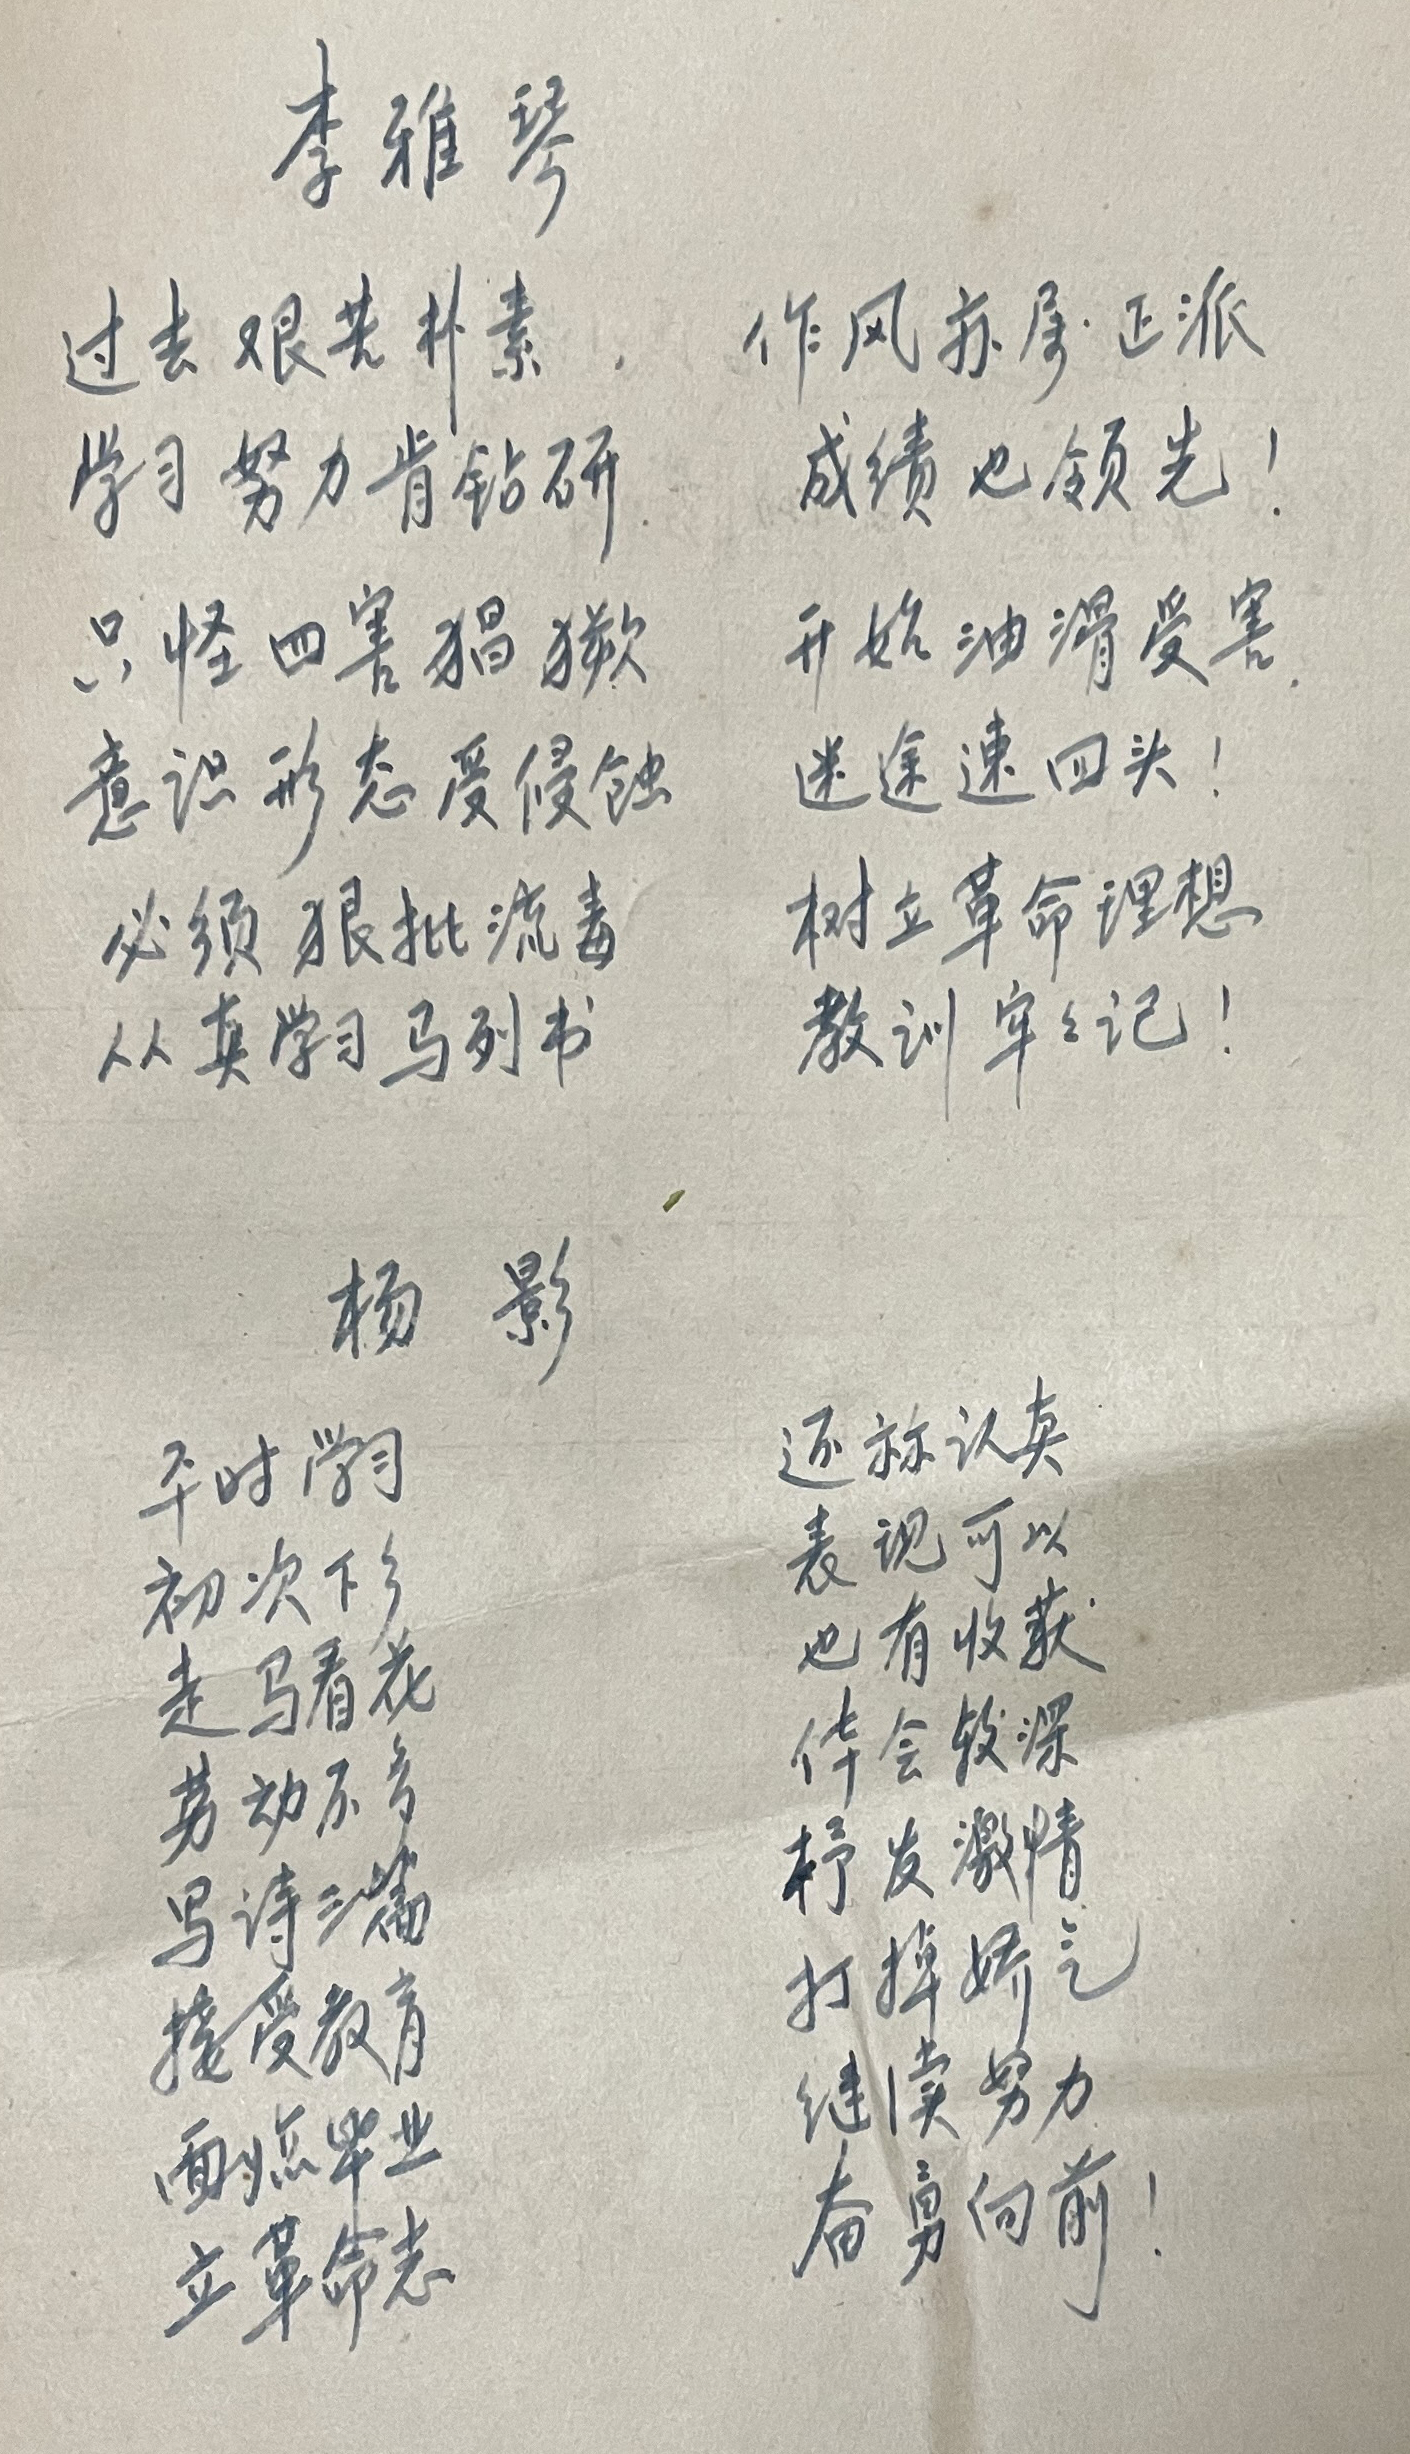 李雅琴
过去艰苦朴素. 作风亦属正派
学习努力肯钻研. 成绩也领先!
只怪四害猖獗 开始油滑受害.
意识形态受侵蚀 迷途速回头!
必须狠批流毒 树立革命理想
从真学习马列书 教训牢々记!
杨影
平时学习 还称认真
初次下乡 表现可以
走马看花 也有收获
劳动不多 体会较深
写诗三篇 抒发激情
接受教育 打掉娇气
面临毕业 继续努力
立革命志 奋勇向前!